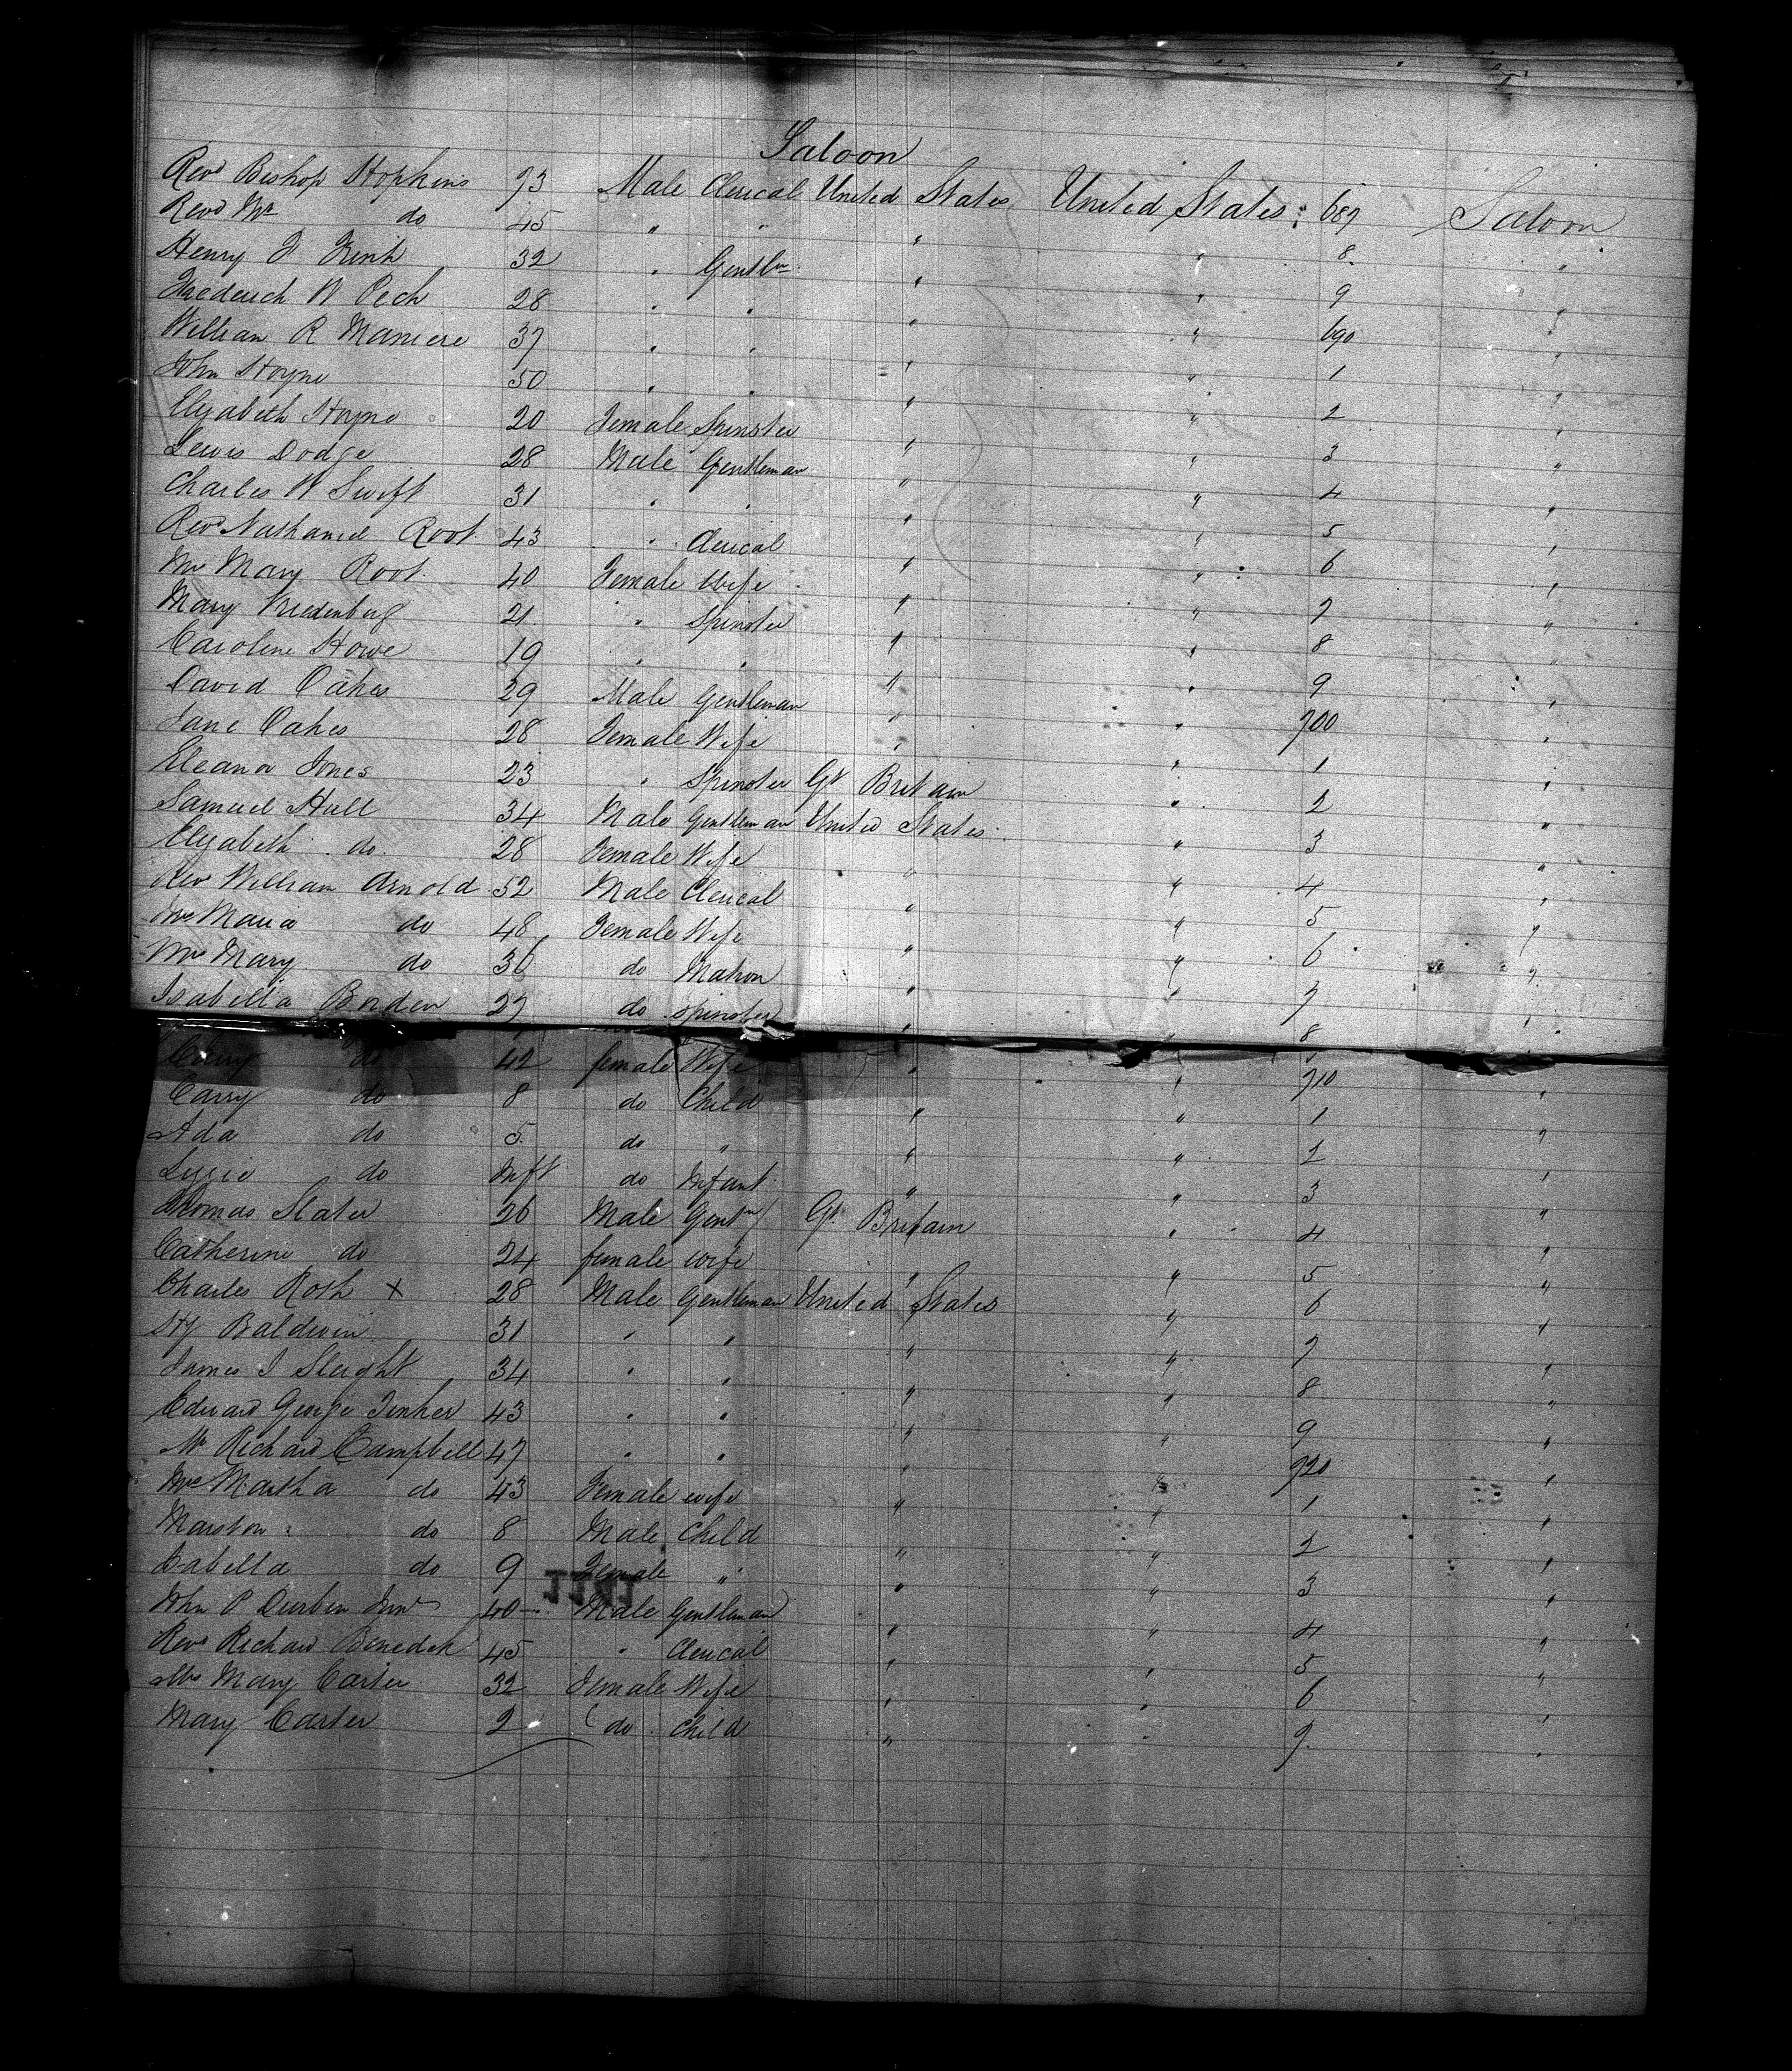 Saloon
Revd Bishop Hopkins 73 Male Clerical United States United States 687 Saloon
Revd Mr do 45 " " " " 8 "
Henry 32 " Gentln " " 9 "
Frederick W Pech 28 " " " " 690 "
William R Maniere 37 " " " " 1 "
John Hoyne 50 " " " " 2 "
Elizabeth Hoyne 20 Female Spinster " " 3 "
Lewis Dodge 28 Male Gentleman " " 4 "
Charles W Swift 31 " " " " 5 "
Revd Nathaniel Root 43 " Clerical " " 6 "
Mrs Mary Root 40 Female Wife " " 7 "
Mary Vredenburg 21 " Spinster " " 8 "
Caroline Howe 19 " " " " 9 "
David Oakes 29 Male Gentleman " " 700 "
Jane Oakes 28 Female Wife " " 1 "
Eleanor Jones 23 " Spinster Gt Britain " 2 "
Samuel Hull 34 Male Gentleman United States " 3 "
Elizabeth do 28 Female Wife " " 4 "
Rev William Arnold 52 Male Clerical " " 5 "
Mrs Maria do 48 Female Wife " " 6 "
Mrs Mary do 36 do Matron " " 7 "
Isabella Borden 27 do Spinster " " 8 "
do 42 female Wife " " 710 "
Carry do 8 do Child " " 1 "
Ada do 5 do " " " 2 "
Lizzie do Inft do Infant " " 3 "
Thomas Slater 26 Male Gentn Gt Britain " 4 "
Catherine do 24 female wife " " 5 "
Charles Roth x 28 Male Gentleman United States " 6 "
Hy Baldwin 31 " " " " 7 "
James J Sleight 34 " " " " 8 "
Edward George Tinker 43 " " " " 9 "
Mr Richard Campbell 47 " " " " 720 "
Mrs Martha do 43 Female wife " " 1 "
Marston do 8 Male Child " " 2 "
Isabella do 9 Female " " " 3 "
John P Durbin Junr 40 Male Gentleman " " 4 "
Revd Richard Benedict 45 " Clerical " " 5 "
Mrs Mary Carter 32 Female Wife " " 6 "
Mary Carter 2 do Child " " 7 "